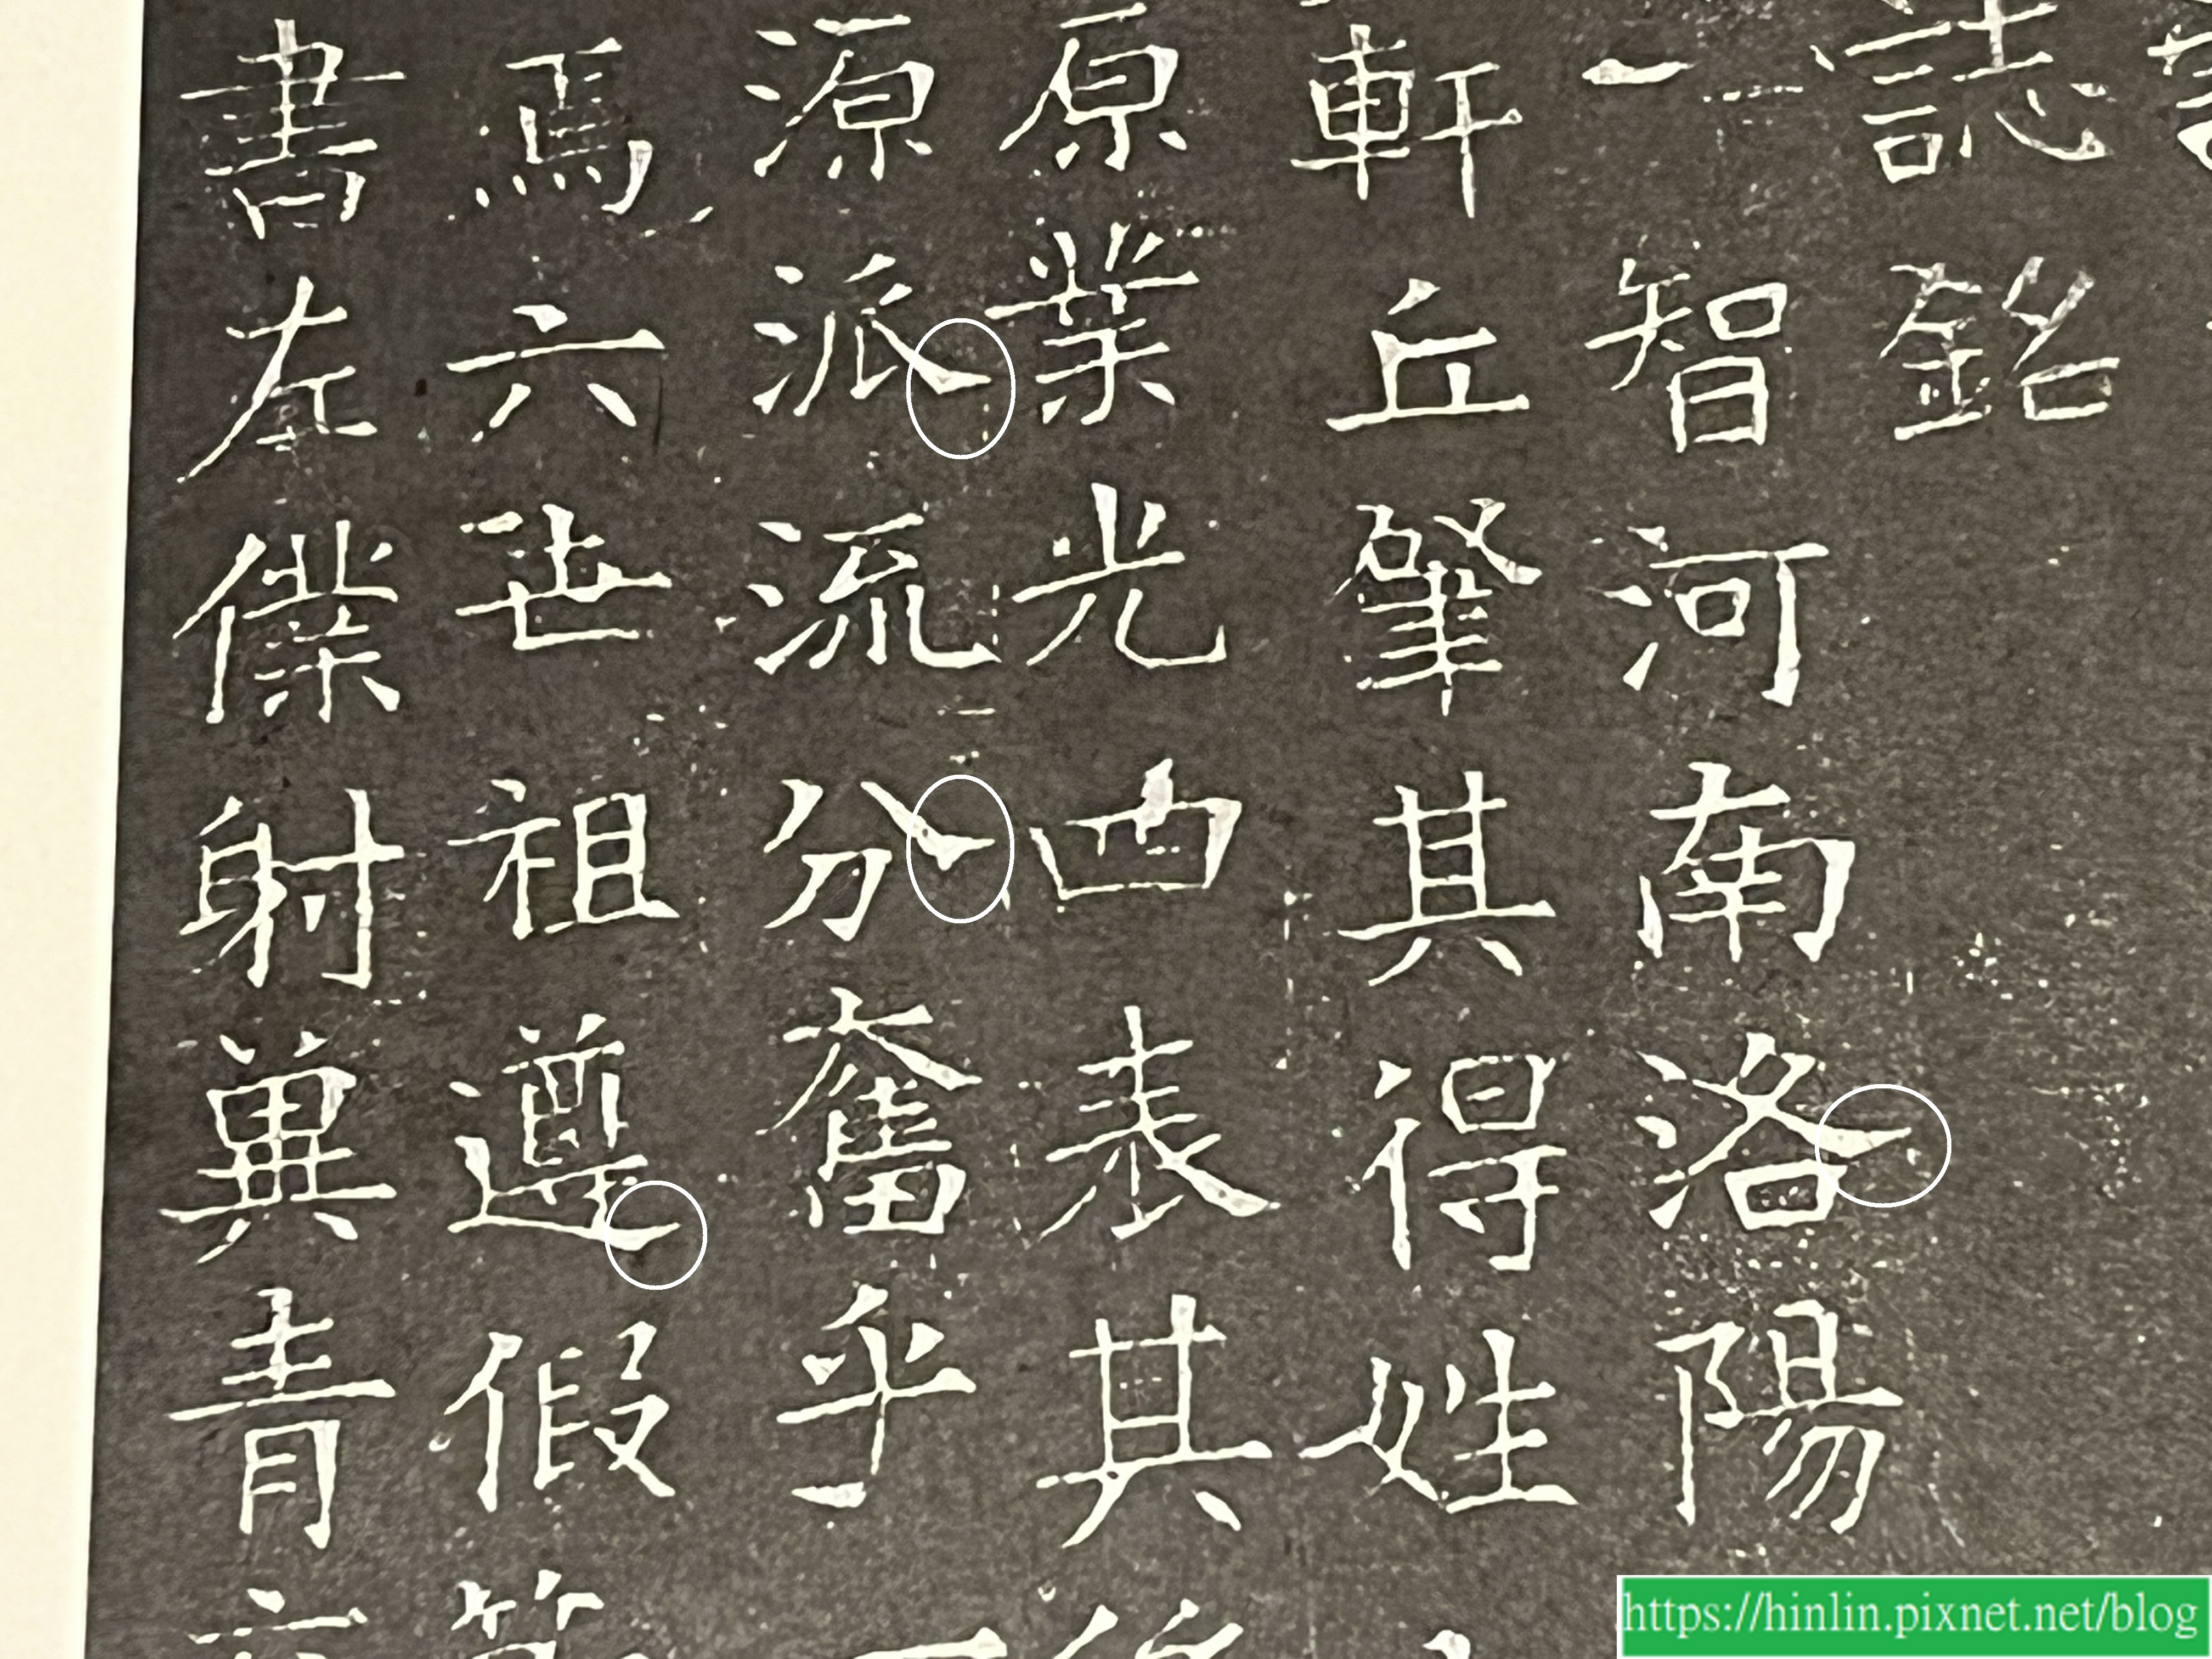 誌銘
智河南洛陽
軒丘肇其得姓
原業光西表其
源派流分奮乎
焉六世祖遵假
書左僕射冀青
https://hinlin.pixnet.net/blog